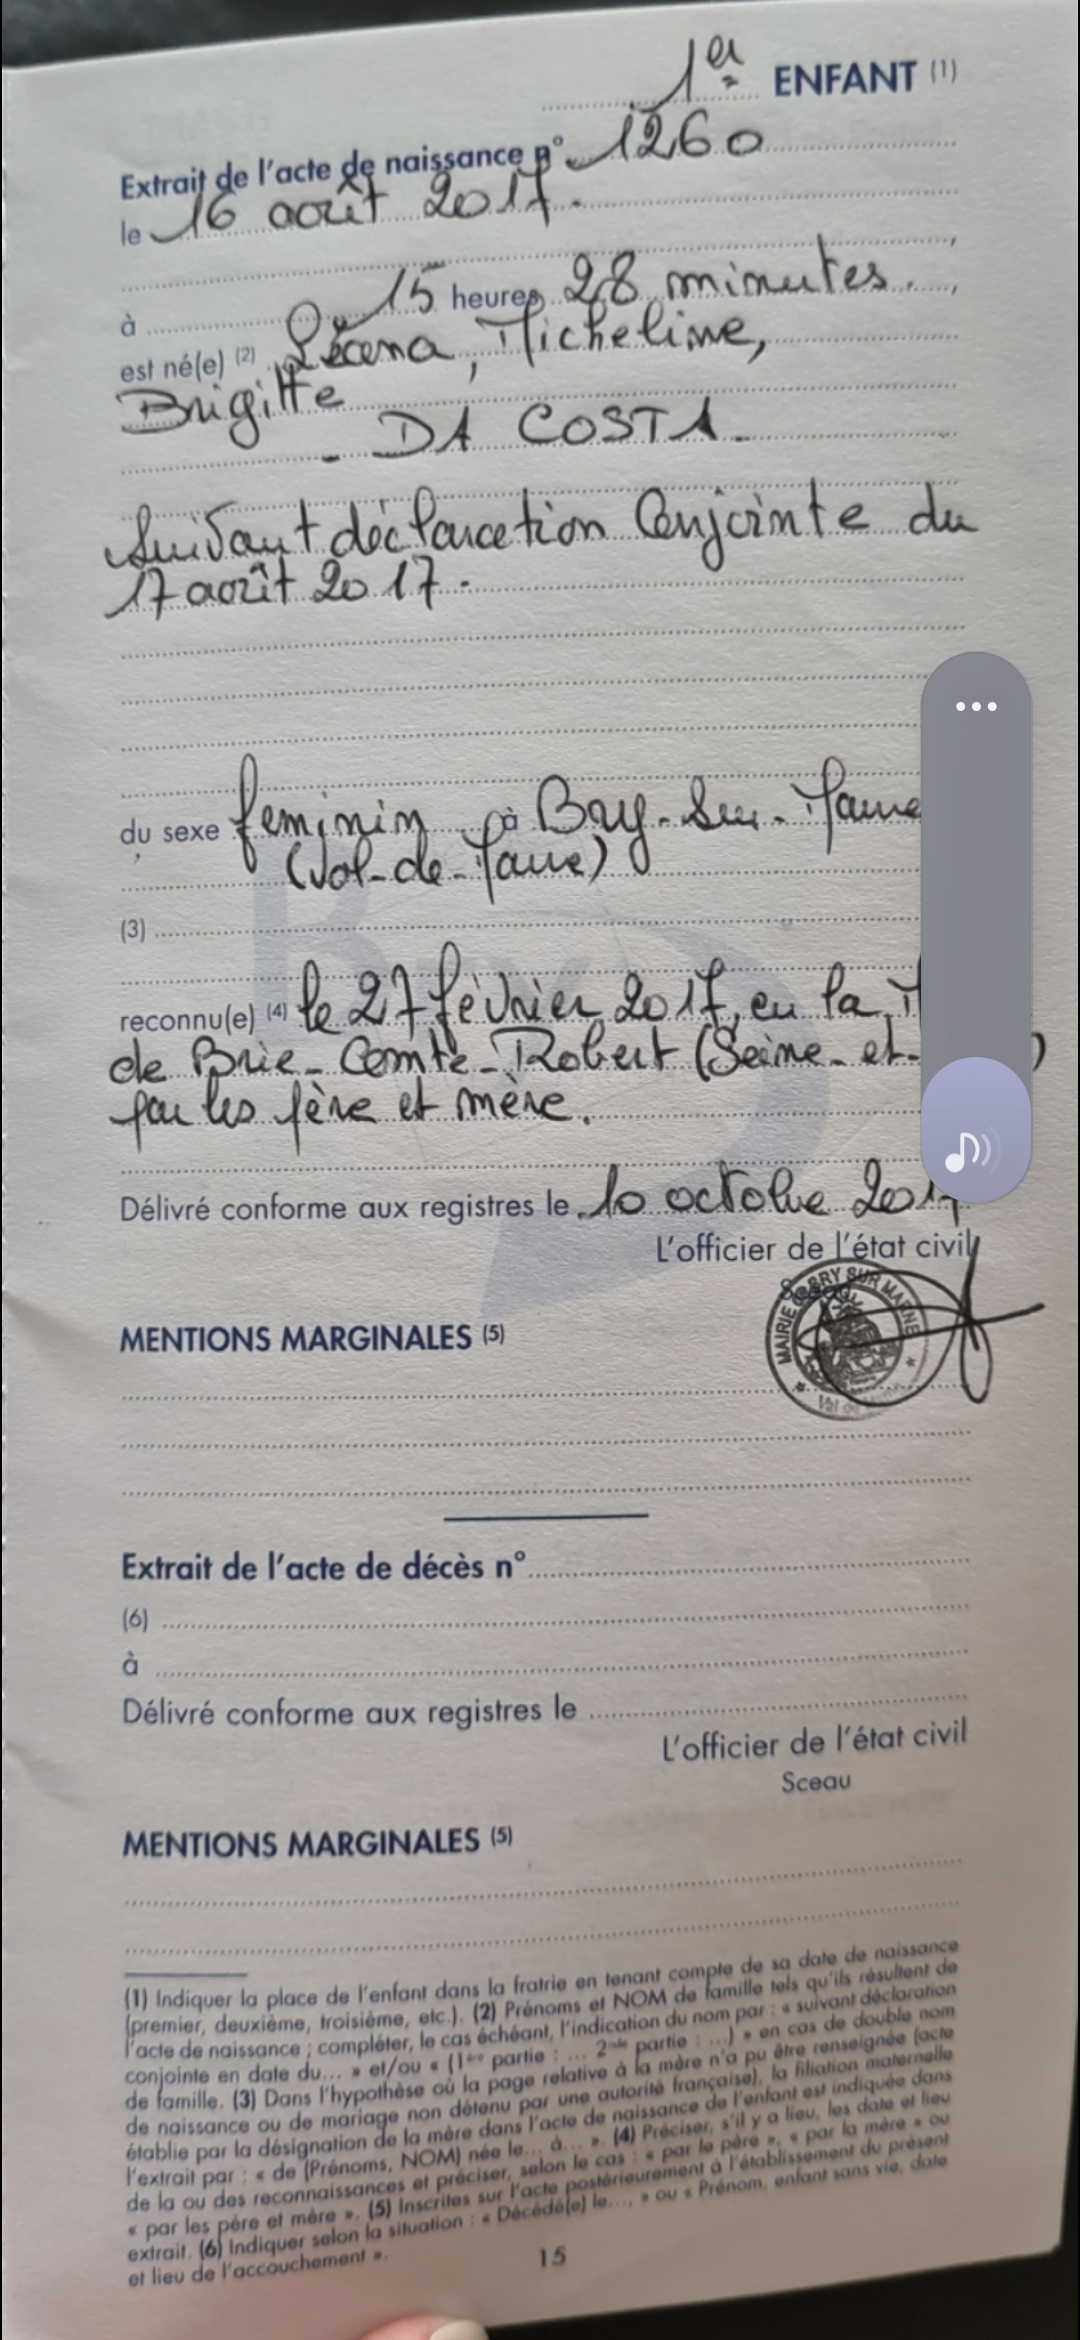 1er ENFANT (1)
Extrait de l'acte de naissance n° 1260
le 16 août 2017.
à 15 heures 28 minutes.,
est né(e) (2) Léana, Micheline,
Brigitte
- DA COSTA -
Suivant déclaration Conjointe du
17 août 2017.
du sexe feminin à Bry-Sur-Marne
(Val-de-Marne)
(3)
reconnu(e) (4) le 27 février 2017, en la
de Brie-Comte-Robert (Seine-et- )
par les père et mère.
Délivré conforme aux registres le 10 octobre 2017
L'officier de l'état civil
Sceau
MAIRIE de BRY SUR MARNE
Val de Marne
MENTIONS MARGINALES (5)
Extrait de l'acte de décès n°
(6)
à
Délivré conforme aux registres le
L'officier de l'état civil
Sceau
MENTIONS MARGINALES (5)
(1) Indiquer la place de l'enfant dans la fratrie en tenant compte de sa date de naissance
(premier, deuxième, troisième, etc.). (2) Prénoms et NOM de famille tels qu'ils résultent de
l'acte de naissance ; compléter, le cas échéant, l'indication du nom par : « suivant déclaration
conjointe en date du... » et/ou « (1ère partie : ... 2nde partie : ...) » en cas de double nom
de famille. (3) Dans l'hypothèse où la page relative à la mère n'a pu être renseignée (acte
de naissance ou de mariage non détenu par une autorité française), la filiation maternelle
établie par la désignation de la mère dans l'acte de naissance de l'enfant est indiquée dans
l'extrait par : « de (Prénoms, NOM) née le... à... ». (4) Préciser, s'il y a lieu, les date et lieu
de la ou des reconnaissances et préciser, selon le cas : « par le père », « par la mère » ou
« par les père et mère ». (5) Inscrites sur l'acte postérieurement à l'établissement du présent
extrait. (6) Indiquer selon la situation : « Décédé(e) le..., » ou « Prénom, enfant sans vie, date
et lieu de l'accouchement ».
15